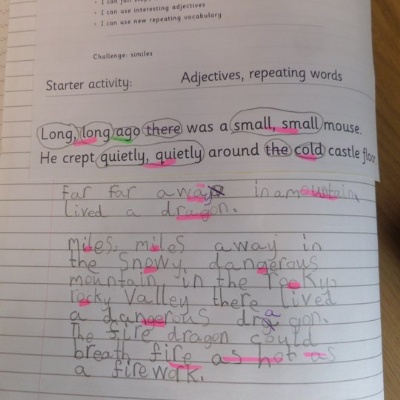 I can use interesting adjectives
I can use new repeating vocabulary
Challenge: similes
Starter activity: Adjectives, repeating words
Long, long ago there was a small, small mouse.
He crept quietly, quietly around the cold castle floor
far far away in a mountain
lived a dragon.
Miles, miles away in
the Snowy, dangerous
mountain in the rocky,
rocky Valley there lived
a dangerous dragon.
The fire dragon could
breath fire as hot as
a firewok.